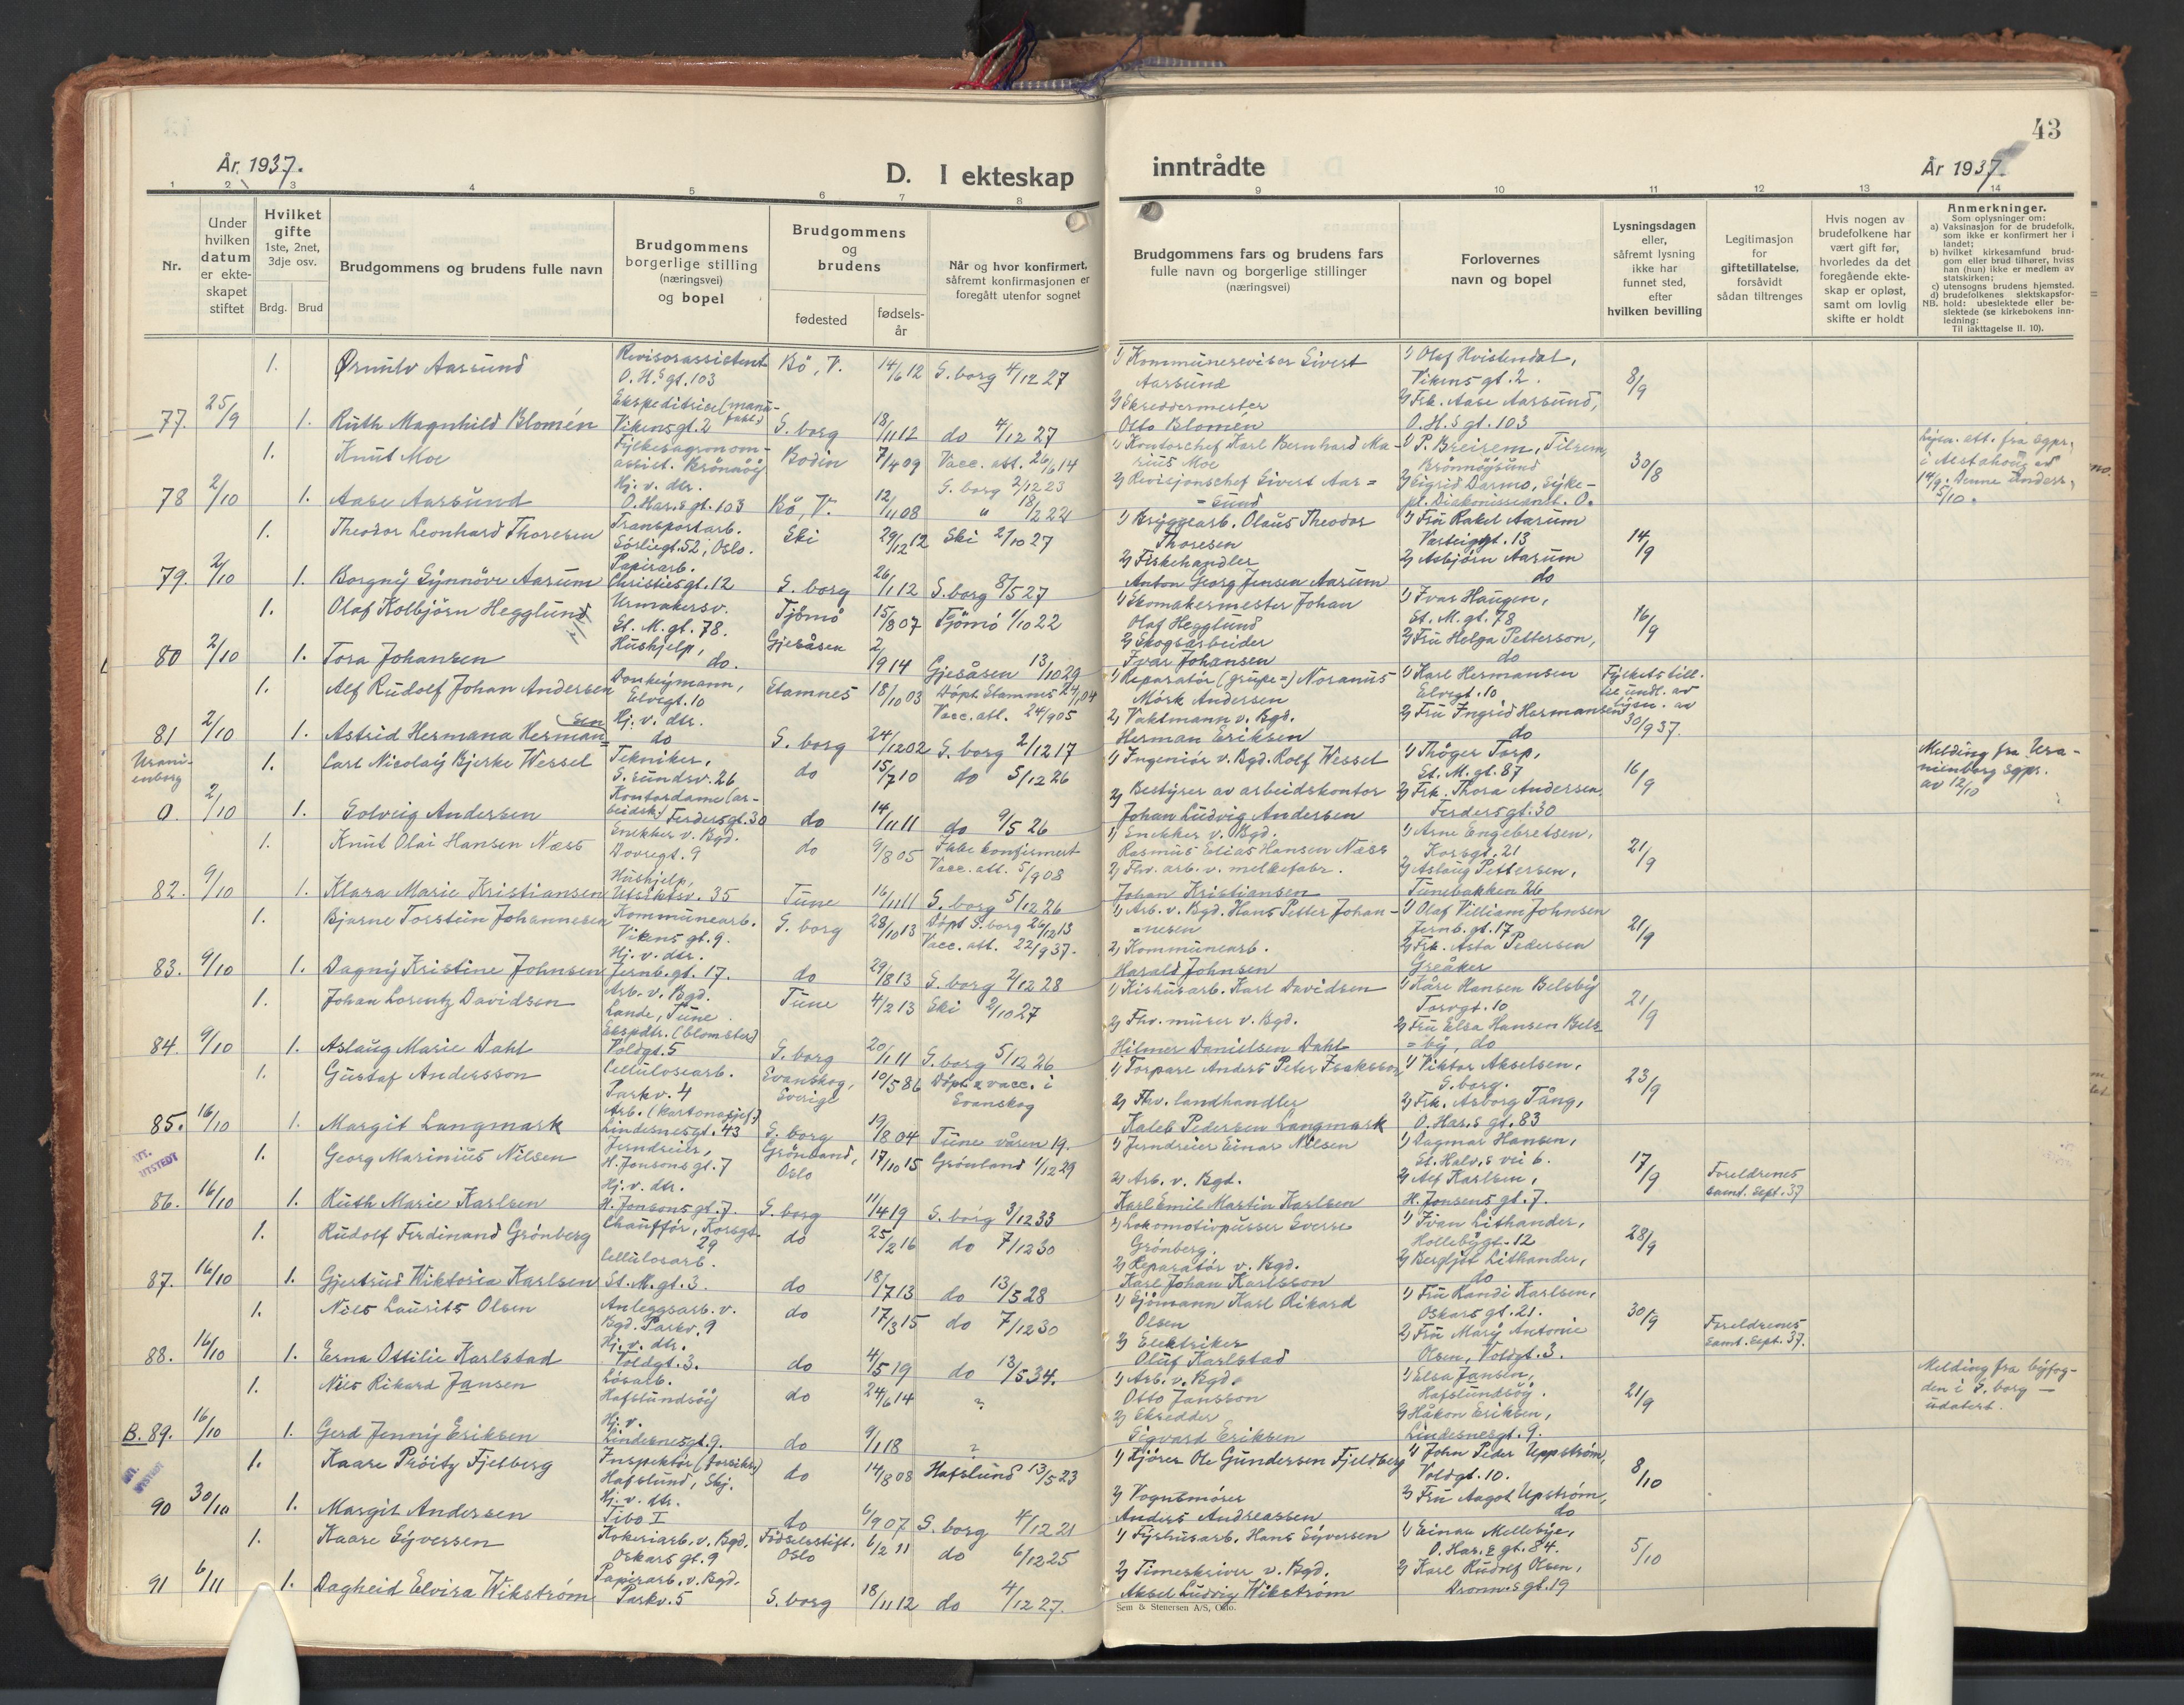 43
År 1937.
D. I ekteskap
inntrådte
År 1937
1 2 3 4 5 6 7 8 9 10 11 12 13 14
Nr.
Under hvilken datum er ekteskapet stiftet
Hvilket gifte
1ste, 2net, 3dje osv.
Brdg. Brud
Brudgommens og brudens fulle navn
Brudgommens borgerlige stilling (næringsvei) og bopel
Brudgommens og brudens
fødested
fødsels-år
Når og hvor konfirmert, såfremt konfirmasjonen er foregått utenfor sognet
Brudgommens fars og brudens fars fulle navn og borgerlige stillinger (næringsvei)
Forlovernes navn og bopel
Lysningsdagen eller, såfremt lysning ikke har funnet sted, efter hvilken bevilling
Legitimasjon for giftetillatelse, forsåvidt sådan tiltrenges
Hvis nogen av brudefolkene har vært gift før, hvorledes da det foregående ekteskap er opløst, samt om lovlig skifte er holdt
Anmerkninger.
Som oplysninger om:
a) Vaksinasjon for de brudefolk, som ikke er konfirmert her i landet;
b) hvilket kirkesamfund brudgom eller brud tilhører, hviss han (hun) ikke er medlem av statskirken;
c) utensogns brudens hjemsted.
d) brudefolkenes slektskapsforhold: ubeslektede eller beslektede (se kirkebokens innledning:
NB.
Til iakttagelse II. 10).
1. Ørnulv Aarsund Revisorassistent O. H.s gt. 103 Bö, V. 14/6 12 S. borg 4/12 27 1) Kommunerevisor Sivert Aarsund 1) Olaf Hvistendal, Vikens gt. 2. 8/9
77. 25/9 1. Ruth Magnhild Blomén Vikensgt. 2 S. borg 18/11 12 do 4/12 27 2) Skreddermester Otto Blomén 2) Frk. Aase Aarsund, O. H.s gt. 103
1. Knut Moe Fylkesagronom-assist. Brönnöy Bodin 7/4 09 Vacc. att. 26/6 14 1) Kontorchef Karl Bernhard Marius Moe 1) P. Breirem, Tilrem, Brönnöysund 30/8
78 2/10 1. Aase Aarsund Hj. v. dtr. O. Har.s gt. 103 Bö, V. 12/11 08 S. borg 2/12 23 2) Revisjonschef Sivert Aar=sund 2) Sigrid Darmo, Syke-
1. Theodor Leonhard Thoresen Transportarb. Sörliegt. 52, Oslo. Ski 29/12 12 Ski 2/10 27 1) Bryggearb. Olaus Theodor Thoresen 1) Fru Rakel Aarum 14/9
79. 2/10 1. Borgny Synnöve Aarum Papirarb. Christiesgt. 12 S. borg 26/1 12 S. borg 8/5 27 2) Fiskehandler Anton Georg Jensen Aarum 2) Asbjörn Aarum do
1. Olaf Kolbjörn Hegglund Urmakersv. St. M. gt. 78. Tjömö 15/8 07 Tjömö 1/10 22 1) Skomakermester Johan Olaf Hegglund 1) Ivar Haugen, St. M. gt. 78 16/9
80 2/10 1. Tora Johansen Hushjelp, do. Gjesåsen 2/9 14 Gjesåsen 13/10 29 2) Skogsarbeider Ivar Johansen 2) Fru Helga Petterson, do
1. Alf Rudolf Johan Andersen Donkeymann, Elvegt. 10 Stamnes 18/10 03 Döpt Stamnes 24/1 04 Vacc. att. 24/9 05 1) Reparatör Mörk Andersen 1) Karl Hermansen Elvegt. 10 Fylkets till. lse undl. av lysn. av 30/9 37.
81 2/10 1. Astrid Hermana Hermansen Hj. v. dtr. do S. borg 24/12 02 S. borg 2/12 17 2) Vaktmann v. Bgd. Herman Eriksen 2) Fru Ingrid Hermansen do
Uranienborg 1. Carl Nicolay Bjerke Wessel Tekniker, S. sundsv. 26 do 15/7 10 do 5/12 26 1) Ingeniör v. Bgd. Rolf Wessel 1) Thöger Torp, St. M. gt. 87 16/9 Melding fra Uranienborg sgpr. av 12/10
0. 2/10 1. Solveig Andersen Kontordame (arbeidsk) Ferdersgt. 30 do 14/11 11 do 9/5 26 2) Bestyrer av arbeidskontor Johan Ludvig Andersen 2) Frk. Thora Andersen Ferdersgt. 30
1. Knut Olai Hansen Næss Snekker v. Bgd. Dovregt. 9 do 9/8 05 Ikke konfirmert Vacc. att. 5/9 08 1) Snekker v. Bgd. Rasmus Elias Hansen Næss 1) Arne Engebretsen, Korsgt. 21 21/9
82. 9/10 1. Klara Marie Kristiansen Hushjelp, Utsiktsv. 35 Tune 16/11 11 S. borg 5/12 26 2) Fhv. arb. v. melkefabr. Johan Kristiansen 2) Aslaug Pettersen, Tunebakken 26
1. Bjarne Torstein Johannesen Kommunearb. Vikens gt. 9. S. borg 28/10 13 Döpt S. borg 26/12 13 Vacc. att. 22/9 37. 1) Arb. v. Bgd. Hans Petter Johan=nesen 1) Olaf Villiam Johnsen Jernb. gt. 17 21/9
83. 9/10 1. Dagny Kristine Johnsen Hj. v. dtr. Jernb. gt. 17. do 29/8 13 S. borg 2/12 28 2) Kommunearb. Harald Johnsen 2) Frk. Asta Pedersen Greåker
1. Johan Lorentz Davidsen Arb. v. Bgd. Lande, Tune Tune 4/2 13 Ski 2/10 27 1) Kishusarb. Karl Davidsen 1) Kåre Hansen Belsby Torvgt. 10 21/9
84. 9/10 1. Aslaug Marie Dahl Ekspdtr. (blomster) Voldgt. 5 S. borg 20/1 11 S. borg 5/12 26 2) Fhv. murer v. Bgd. Hilmer Danielsen Dahl 2) Fru Elsa Hansen Bels=by, do
1. Gustaf Andersson Cellulosearb. Parkv. 4 Svanskog, Sverige 10/5 86 Döpt & vacc. i Svanskog 1) Torpare Anders Peter Isaksson 1) Viktor Akselsen, S. borg. 23/9
85. 16/10 1. Margit Langmark Arb. Lindesnesgt. 43 S. borg 19/8 04 Tune våren 19. 2) Fhv. landhandler Kaleb Pedersen Langmark 2) Frk. Asborg Tång, O. Har.s gt. 83
ATT. UTSTEDT 1. Georg Marinius Nilsen Jerndreier, H. Jonsons gt. 7 Grönland, Oslo 17/10 15 Grönland 1/12 29 1) Jerndreier Einar Nilsen 1) Dagmar Hansen, St. Halv.s vei 6. 17/9 Foreldrenes samt. Sept. 37
86. 16/10 1. Ruth Marie Karlsen Hj. v. dtr. H. Jonsons gt. 7. S. borg 11/4 19 S. borg 3/12 33 2) Arb. v. Bgd. Karl Emil Martin Karlsen 2) Alf Karlsen, H. Jonsens gt. 7.
1. Rudolf Ferdinand Grönberg Chaufför, Korsgt. 29 do 25/2 16 do 7/12 30 1) Lokomotivpusser Sverre Grönberg 1) Ivan Lithander, Hollebygt. 12 28/9
87. 16/10 1. Gjertrud Wiktoria Karlsen Cellulosarb. St. M. gt. 3. do 18/7 13 do 13/5 28 2) Reparatör v. Bgd. Karl Johan Karlsson 2) Bergljot Lithander, do
1. Nils Laurits Olsen Anleggsarb. v. Bgd. Parkv. 9 do 17/3 15 do 7/12 30 1) Sjömann Karl Rikard Olsen 1) Fru Randi Karlsen, Oskars gt. 21. 30/9 Foreldrenes samt. Sept. 37.
88. 16/10 1. Erna Ottilie Karlstad Hj. v. dtr. Voldgt. 3. do 4/5 19 do 13/5 34. 2) Elektriker Oluf Karlstad 2) Fru Mary Antonie Olsen, Voldgt. 3.
1. Nils Rikard Jansen Lösarb. Hafslundsöy do 24/6 14 ? 1) Arb. v. Bgd. Otto Jansson 1) Elsa Jansen, Hafslundsöy. 21/9 Melding fra byfogden i S. borg — udatert.
B. 89. 16/10 1. Gerd Jenny Eriksen Hj. v. Lindesnesgt. 9. do 9/1 18 ? 2) Skredder Sigvard Eriksen 2) Håkon Eriksen, Lindesnesgt. 9.
ATT. UTSTEDT 1. Kaare Pröitz Fjelberg Inspektör (forsikr.) Hafslund, Skj. do 14/8 08 Hafslund 13/5 23 1) Kjörer Ole Gundersen Fjeldberg 1) John Peder Uppström, Voldgt. 10. 8/10
90 30/10 1. Margit Andersen Hj. v. dtr. Tibo I do 6/9 07 S. borg 4/12 21 2) Vognsmörer Anders Andreassen 2) Fru Aagot Upström, do
1. Kaare Syversen Kokeriarb. v. Bgd. Oskars gt. 9 Födselsstift. Oslo 6/2 11 do 6/12 25 1) Fyrhusarb. Hans Syversen 1) Einar Mellebye, O. Har.s gt. 84. 5/10
91 6/11 1. Dagheid Elvira Wikström Papirarb. v. Bgd. Parkv. 5 S. borg 18/11 12 do 4/12 27. 2) Timeskriver v. Bgd. Aksel Ludvig Wikström 2) Karl Rudolf Olsen, Dronn.s gt. 19
Sem & Stenersen A/S, Oslo.